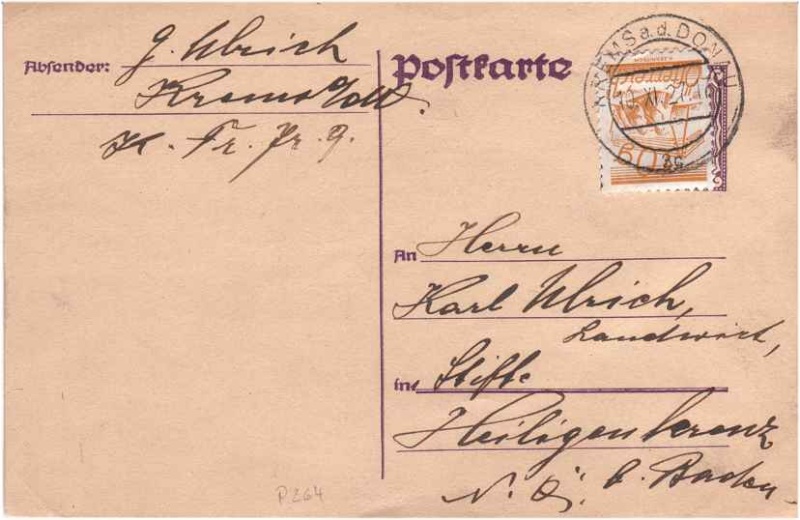 Absender: G. Ulrich
Krems a/d D.
K. Fr. Pr. 9.
Postkarte
KREMS a.d. DONAU
10. XI. 27. 18
3c
Österreich
60
An Herrn
Karl Ulrich,
Landwirt,
in Stift
Heiligenkreuz
N. Ö. b. Baden
P 264